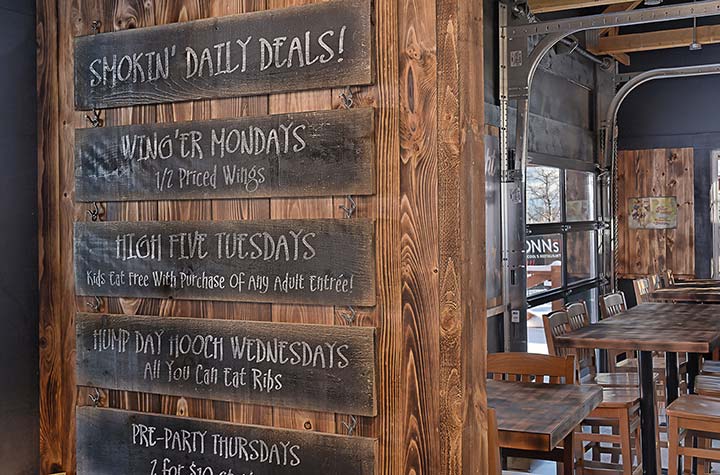 SMOKIN' DAILY DEALS!
WING'ER MONDAYS
1/2 PRICED WINGS
HIGH FIVE TUESDAYS
KIDS EAT FREE WITH PURCHASE OF ANY ADULT ENTRÉE!
HUMP DAY HOOCH WEDNESDAYS
ALL YOU CAN EAT RIBS
PRE-PARTY THURSDAYS
2 FOR $10
ONNs